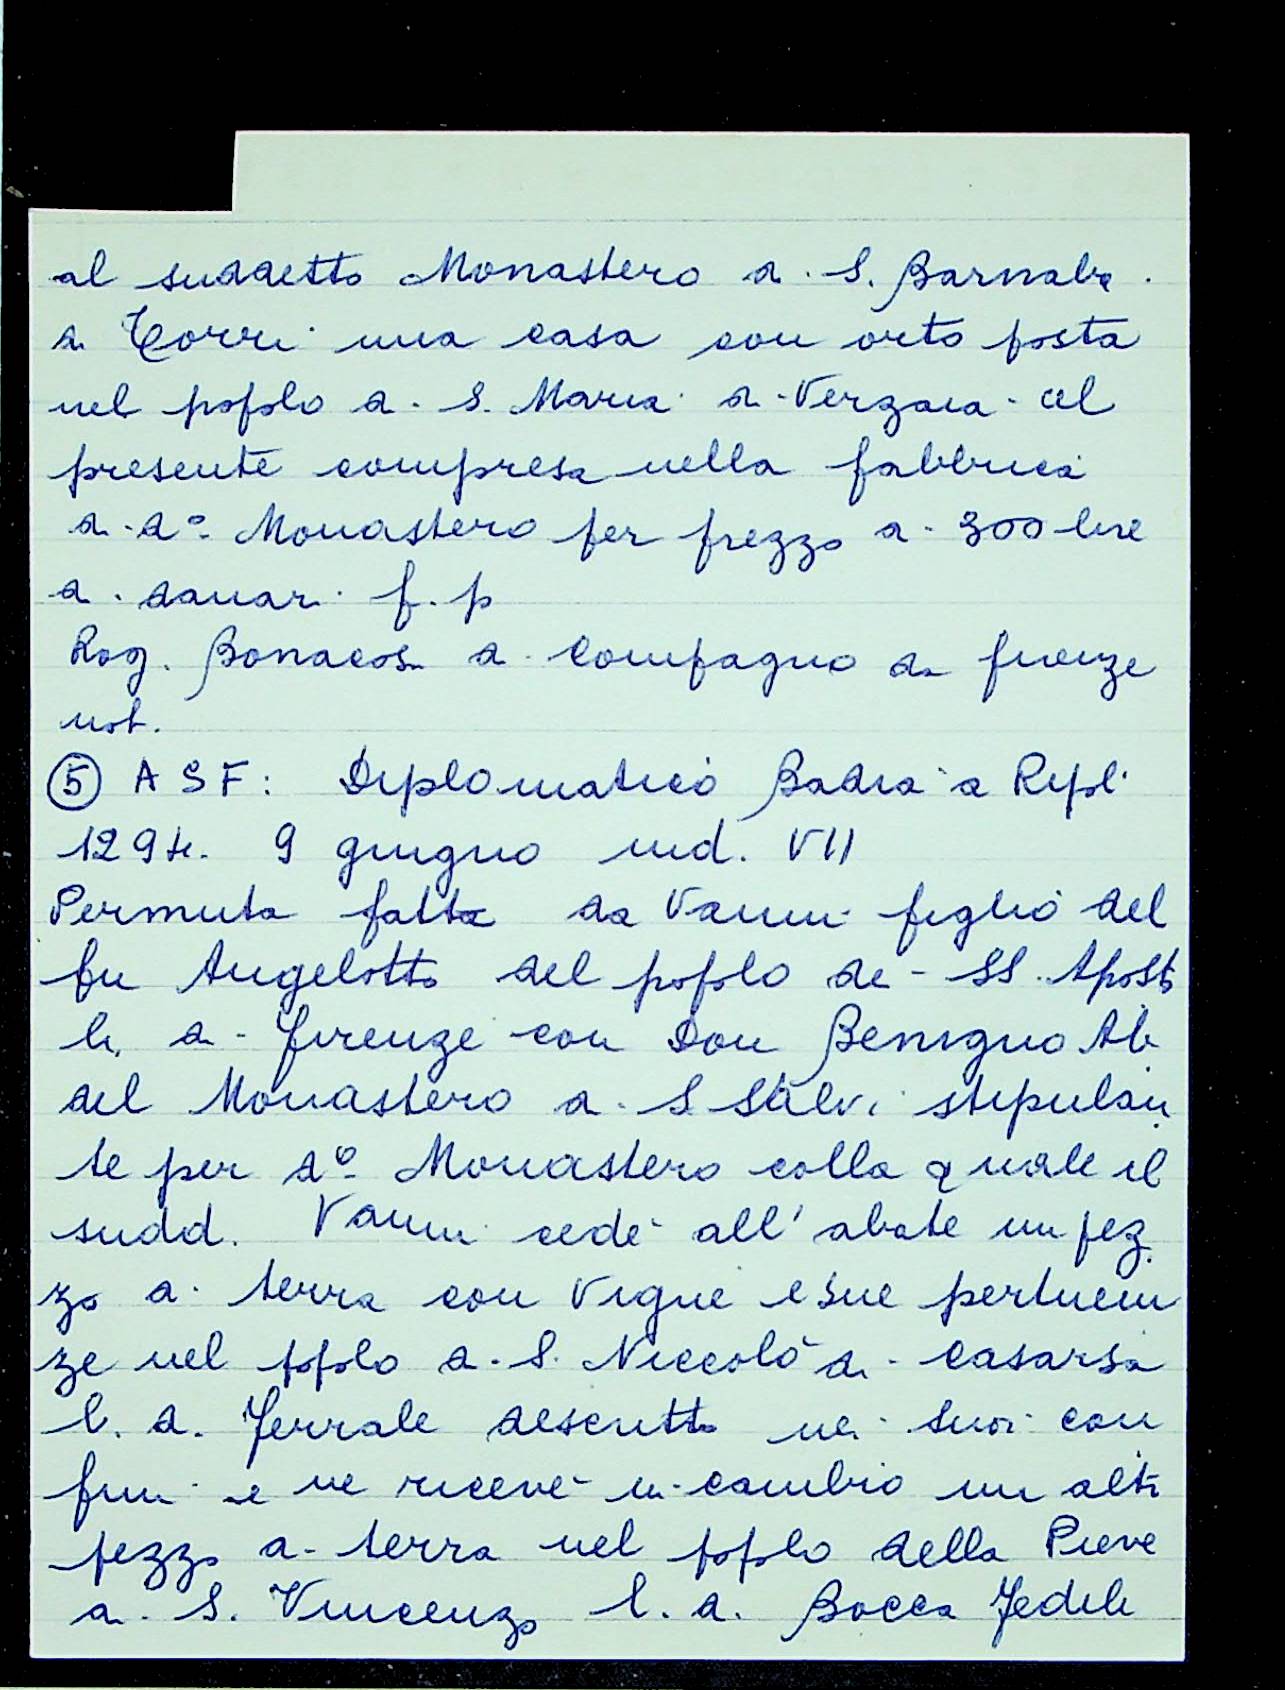 al suddetto Monastero di S. Barnaba
di Torri una casa con orto posta
nel popolo di S. Maria di Verzaia al
presente compresa nella fabbrica
di do. Monastero per prezzo di 300 lire
di danari f. p
Rog. Bonacosi di Compagno da firenze
not.
⑤ ASF: Diplomatico Badia a Ripoli
1294. 9 giugno ind. VII
Permuta fatta da Vanni figlio del
fu Angelotto del popolo de SS. Aposto
li di firenze con Don Benigno Ab.
del Monastero di S. Salvi stipulan
te per do. Monastero colla quale il
sudd. Vanni cedé all'abate un pez
zo di terra con vigne e sue pertinen
ze nel popolo di S. Niccolò di Casarsa
l. d. Ferrale descritto nei suoi con
fini e ne ricevé in cambio un altro
pezzo di terra nel popolo della Pieve
di S. Vincenzo l. d. Bocca Fedeli